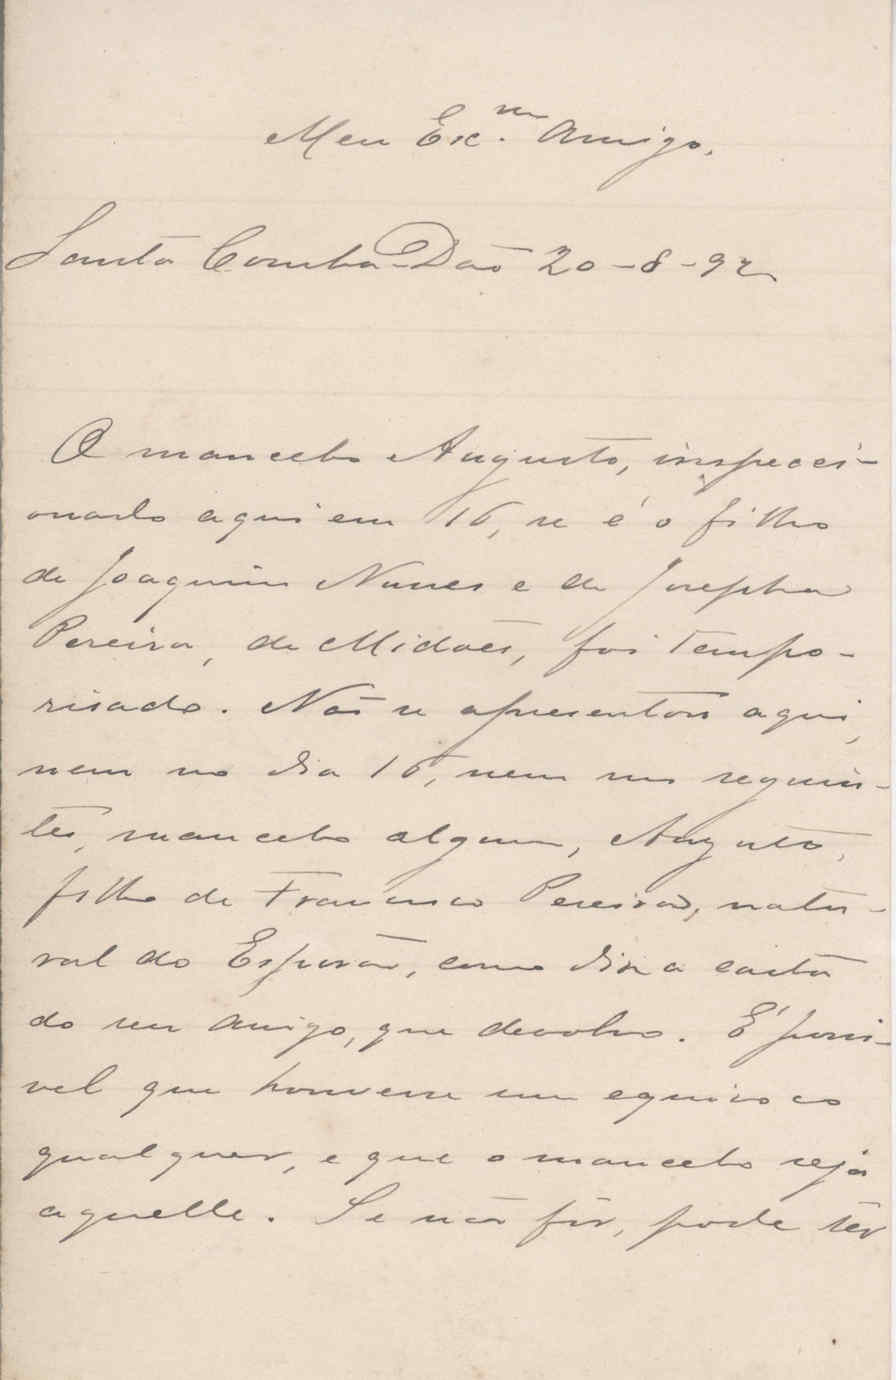 Meu Ex.mo Amigo.
Santa Comba-Dão 20-8-92
O mancebo Augusto, inspecci-
onado aqui em 16, se é o filho
de Joaquim Nunes e de Josepha
Pereira, de Midões, foi tempo-
risado. Não se apresentou aqui,
nem no dia 16, nem nos seguin-
tes, mancebo algum, Augusto,
filho de Francisco Pereira, natu-
ral do Esporão, como diz a carta
do seu amigo, que devolvo. É possi-
vel que houvesse um equivoco
qualquer, e que o mancebo seja
aquelle. Se não fôr, pode ter